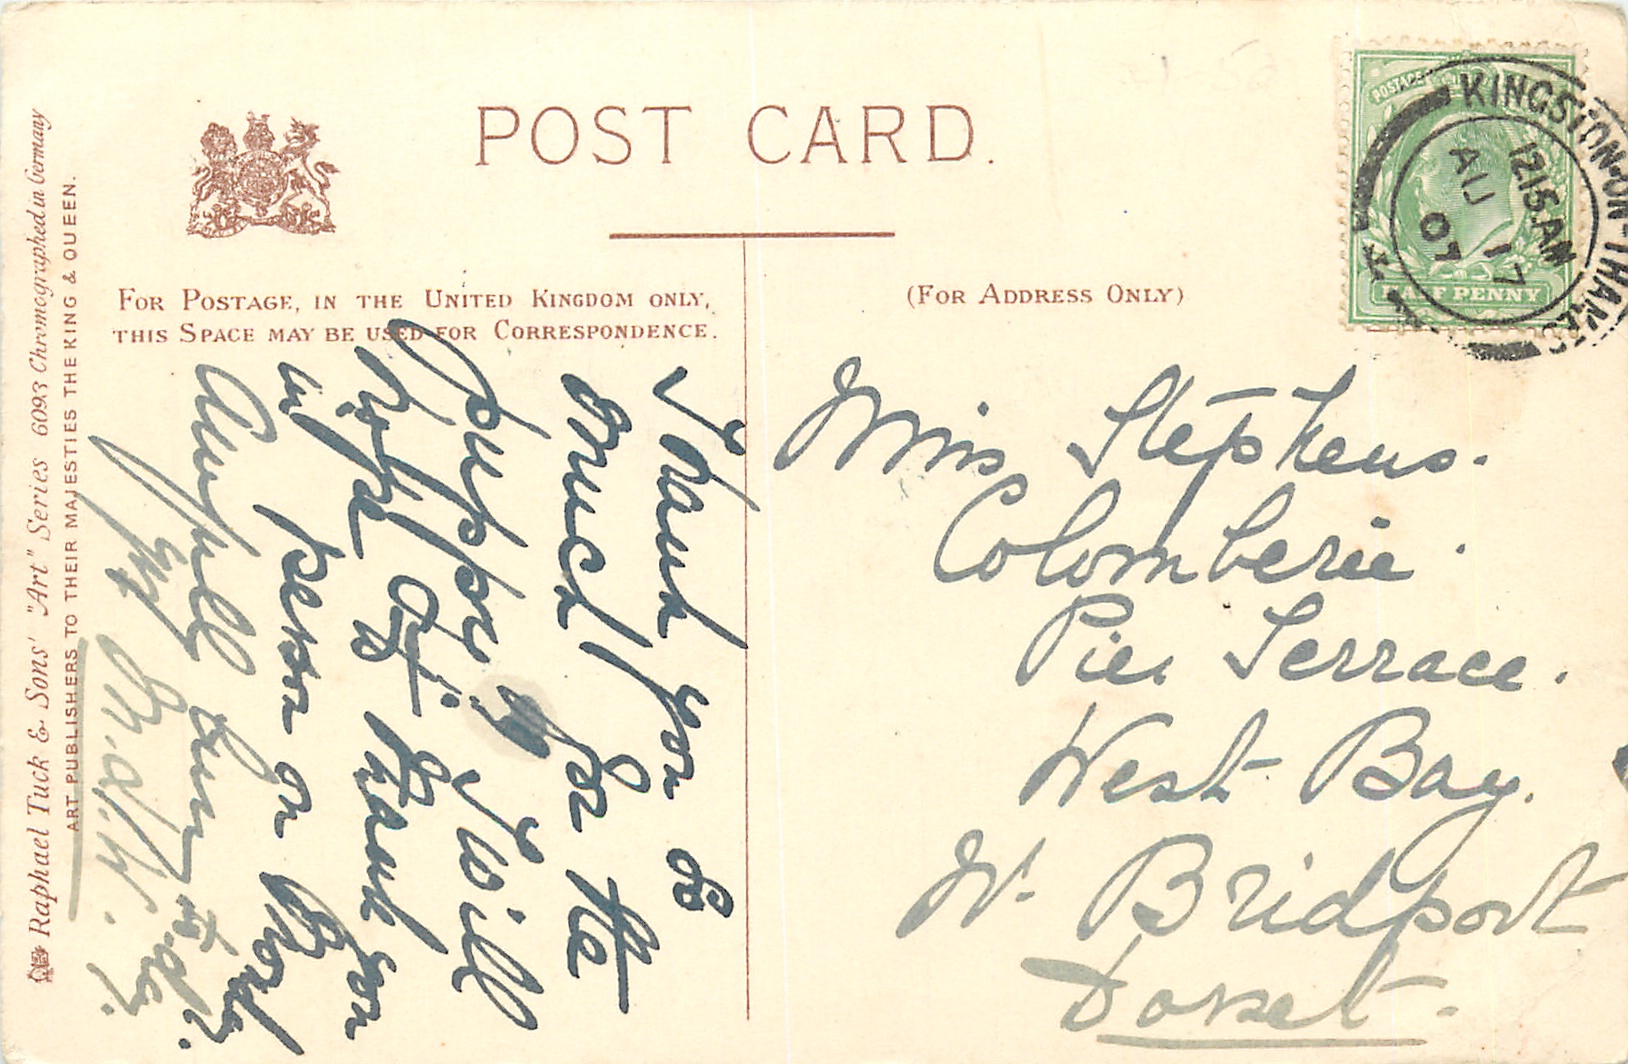 POST CARD.
FOR POSTAGE, IN THE UNITED KINGDOM ONLY,
THIS SPACE MAY BE USED FOR CORRESPONDENCE.
(FOR ADDRESS ONLY)
POSTAGE
HALF PENNY
KINGSTON-ON-THAMES
12 15 AM
AU 17
07
Miss Stephens.
Colomberie.
Pier Terrace.
West Bay.
Nr. Bridport
Dorset.
Thank you so
much for the
I will
thank you
in person on Monday
Raphael Tuck & Sons' "Art" Series 6093 Chromographed in Germany
ART PUBLISHERS TO THEIR MAJESTIES THE KING & QUEEN.